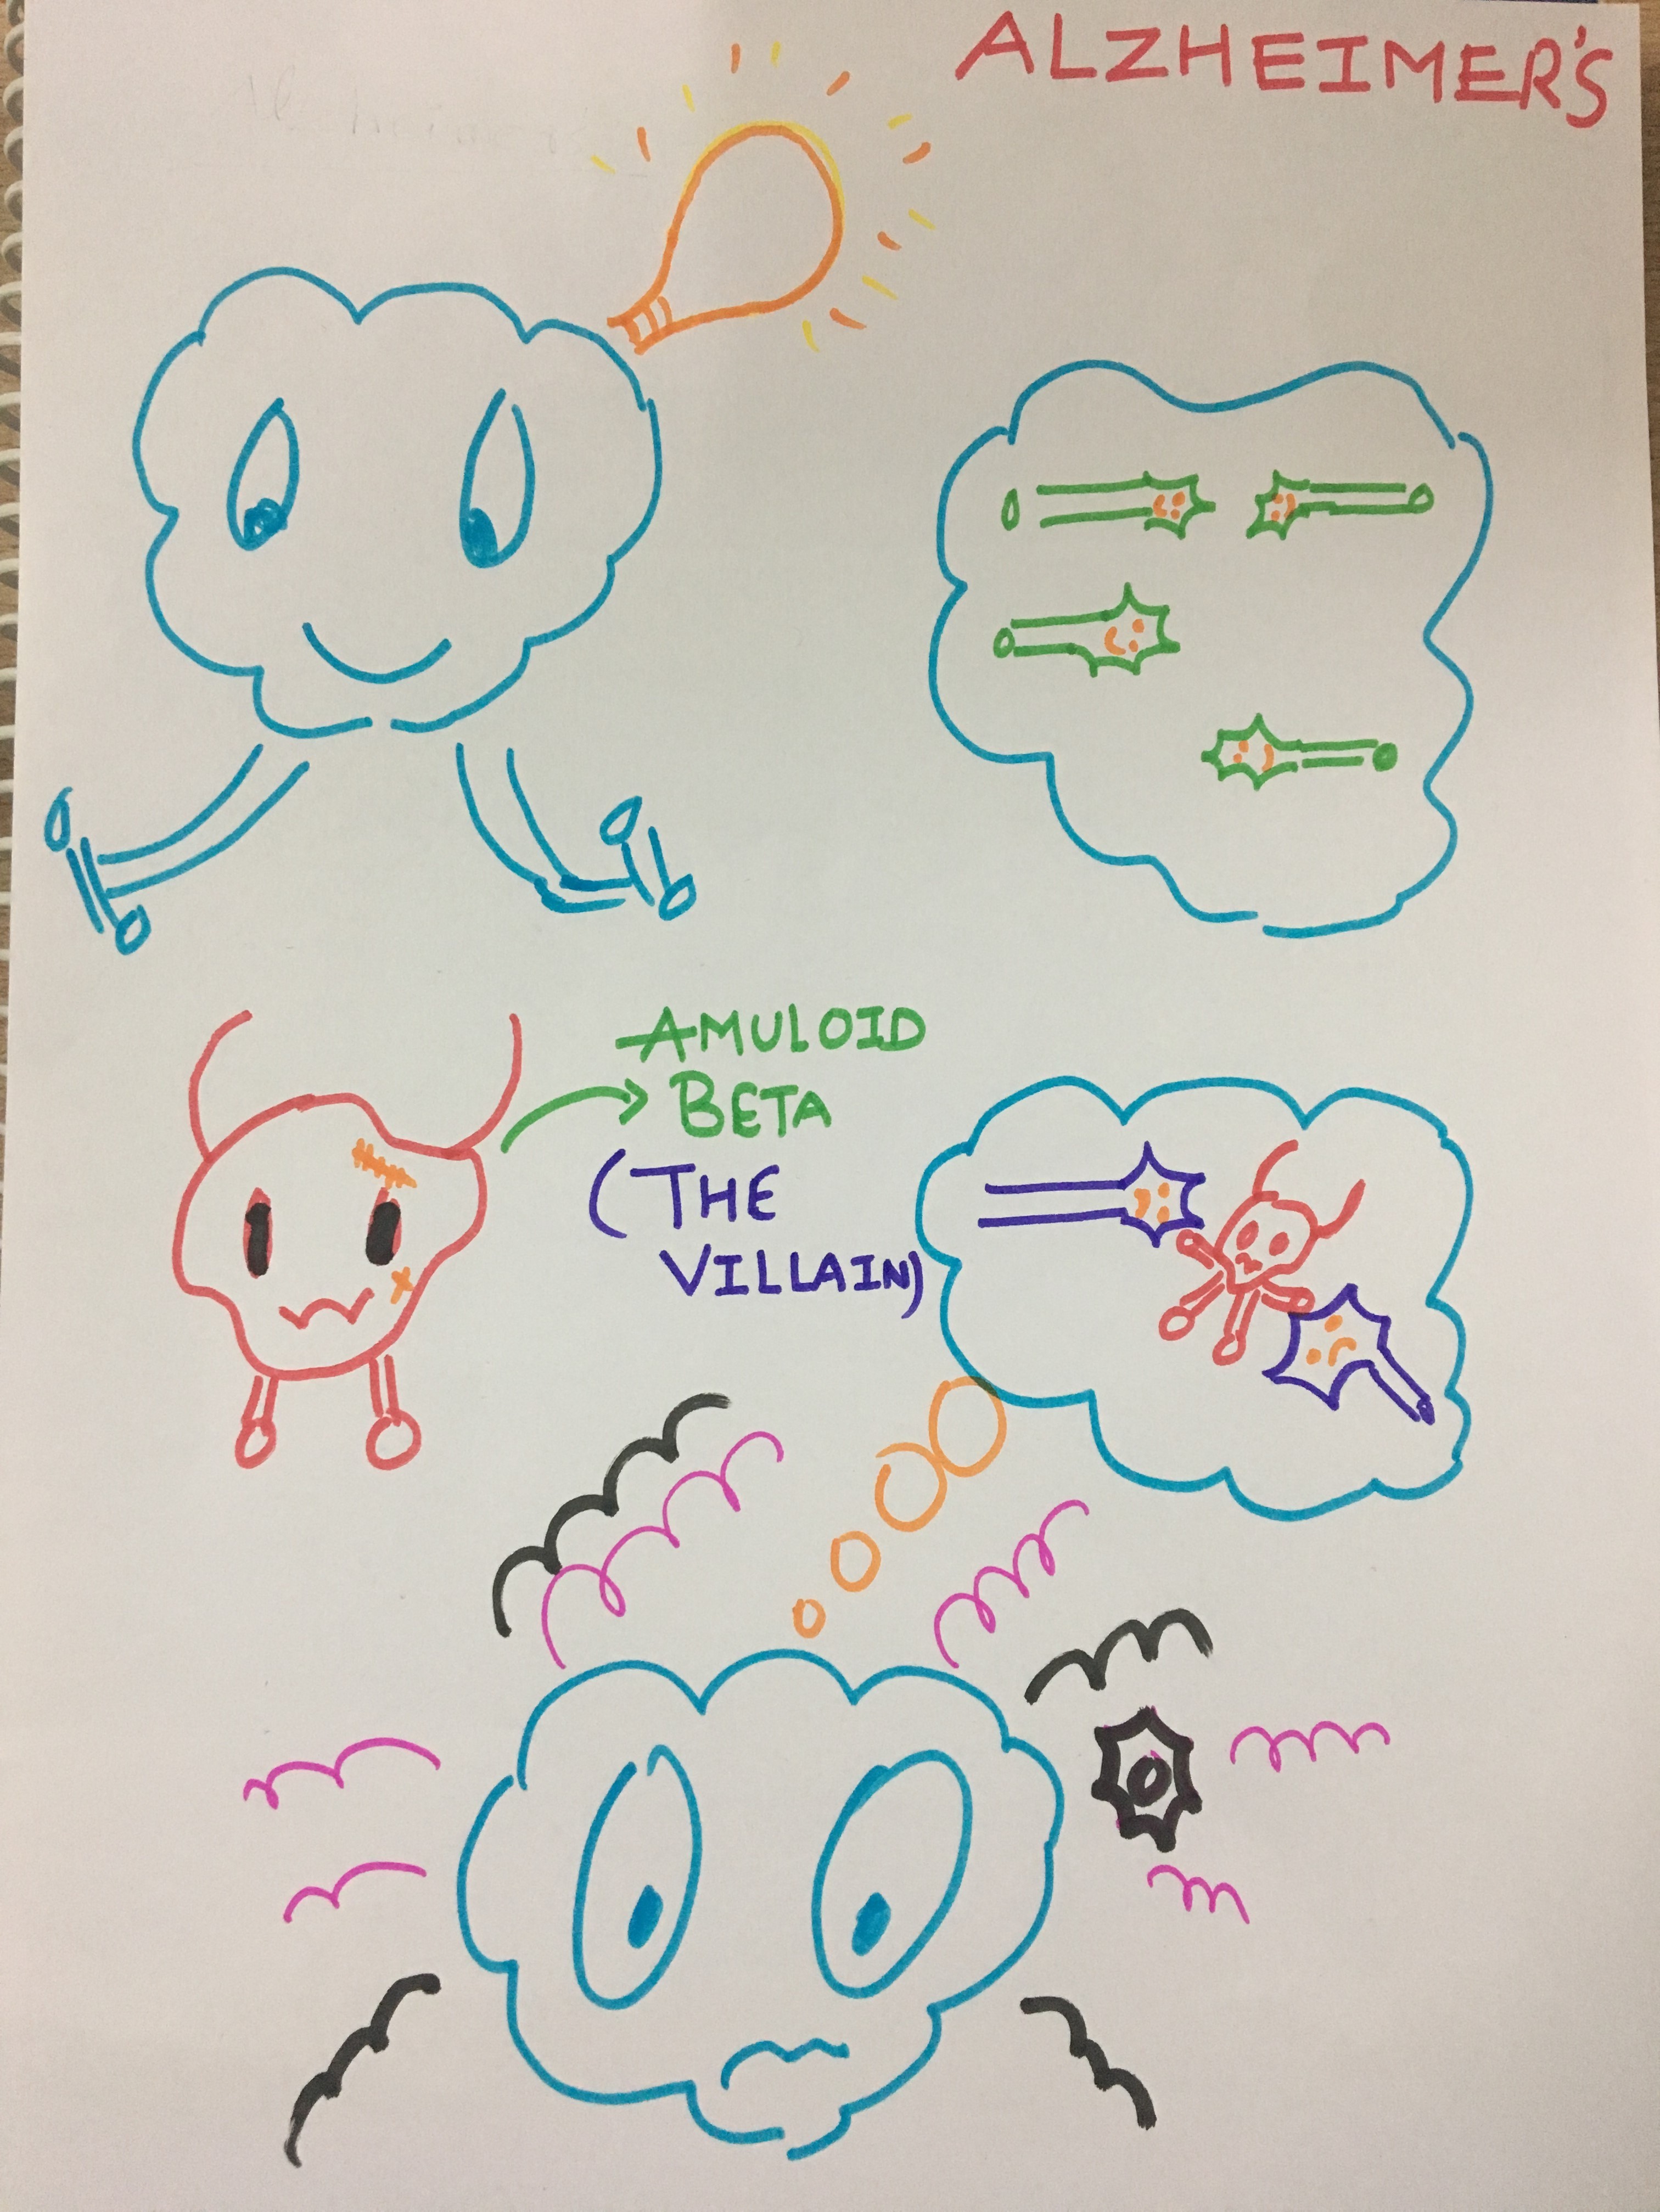 ALZHEIMER'S
AMULOID
BETA
(THE
VILLAIN)